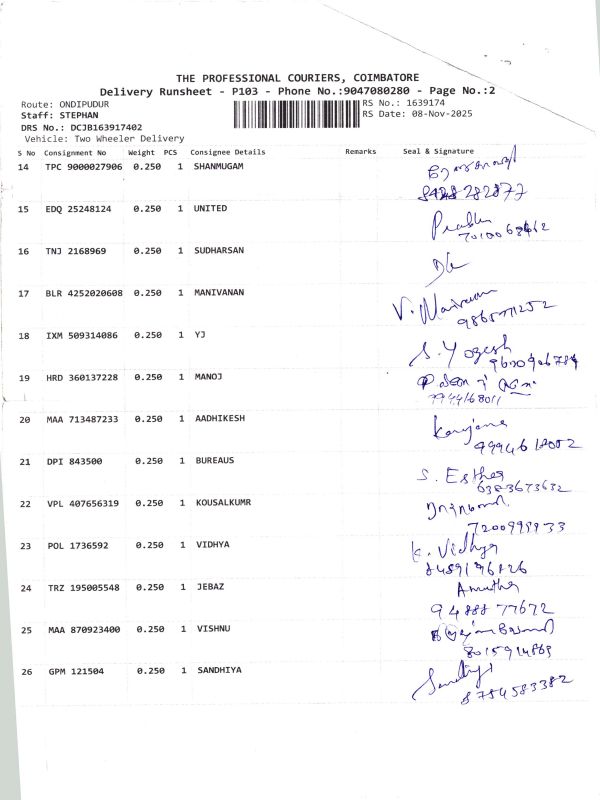 THE PROFESSIONAL COURIERS, COIMBATORE
Delivery Runsheet - P103 - Phone No.:9047080280 - Page No.:2
Route: ONDIPUDUR RS No.: 1639174
Staff: STEPHAN RS Date: 08-Nov-2025
DRS No.: DCJB163917402
Vehicle: Two Wheeler Delivery
S No Consignment No Weight PCS Consignee Details Remarks Seal & Signature
14 TPC 9000027906 0.250 1 SHANMUGAM
15 EDQ 25248124 0.250 1 UNITED Prabhu
16 TNJ 2168969 0.250 1 SUDHARSAN
17 BLR 4252020608 0.250 1 MANIVANAN
18 IXM 509314086 0.250 1 YJ S. Yogesh
19 HRD 360137228 0.250 1 MANOJ
9944168011
20 MAA 713487233 0.250 1 AADHIKESH
21 DPI 843500 0.250 1 BUREAUS S. Esther
6383673632
22 VPL 407656319 0.250 1 KOUSALKUMR
7200999933
23 POL 1736592 0.250 1 VIDHYA K. Vidhya
8489196826
24 TRZ 195005548 0.250 1 JEBAZ Amutha
9488877672
25 MAA 870923400 0.250 1 VISHNU
8015914869
26 GPM 121504 0.250 1 SANDHIYA
8754583382